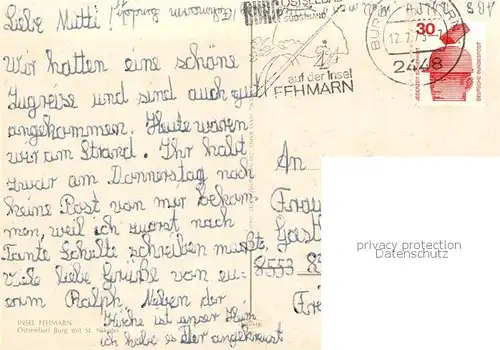 Liebe Mutti!
Wir hatten eine schöne
Zugreise und sind auch gut
angekommen. Heute waren
wir am Strand. Ihr habt
zwar am Donnerstag noch
keine Post von mir bekom-
men, weil ich zuerst nach
Tante Schulte schreiben mußte.
Viele liebe Grüße von eu-
erm Ralph Neben der
Kirche ist unser Heim
ich habe es angekreuzt
INSEL FEHMARN
Ostseebad Burg mit St.
OSTSEEBAD
SÜDSTRAND
auf der Insel
FEHMARN
BURG
2448
30
DEUTSCHE BUNDESPOST
An
8553
privacy protection
Datenschutz